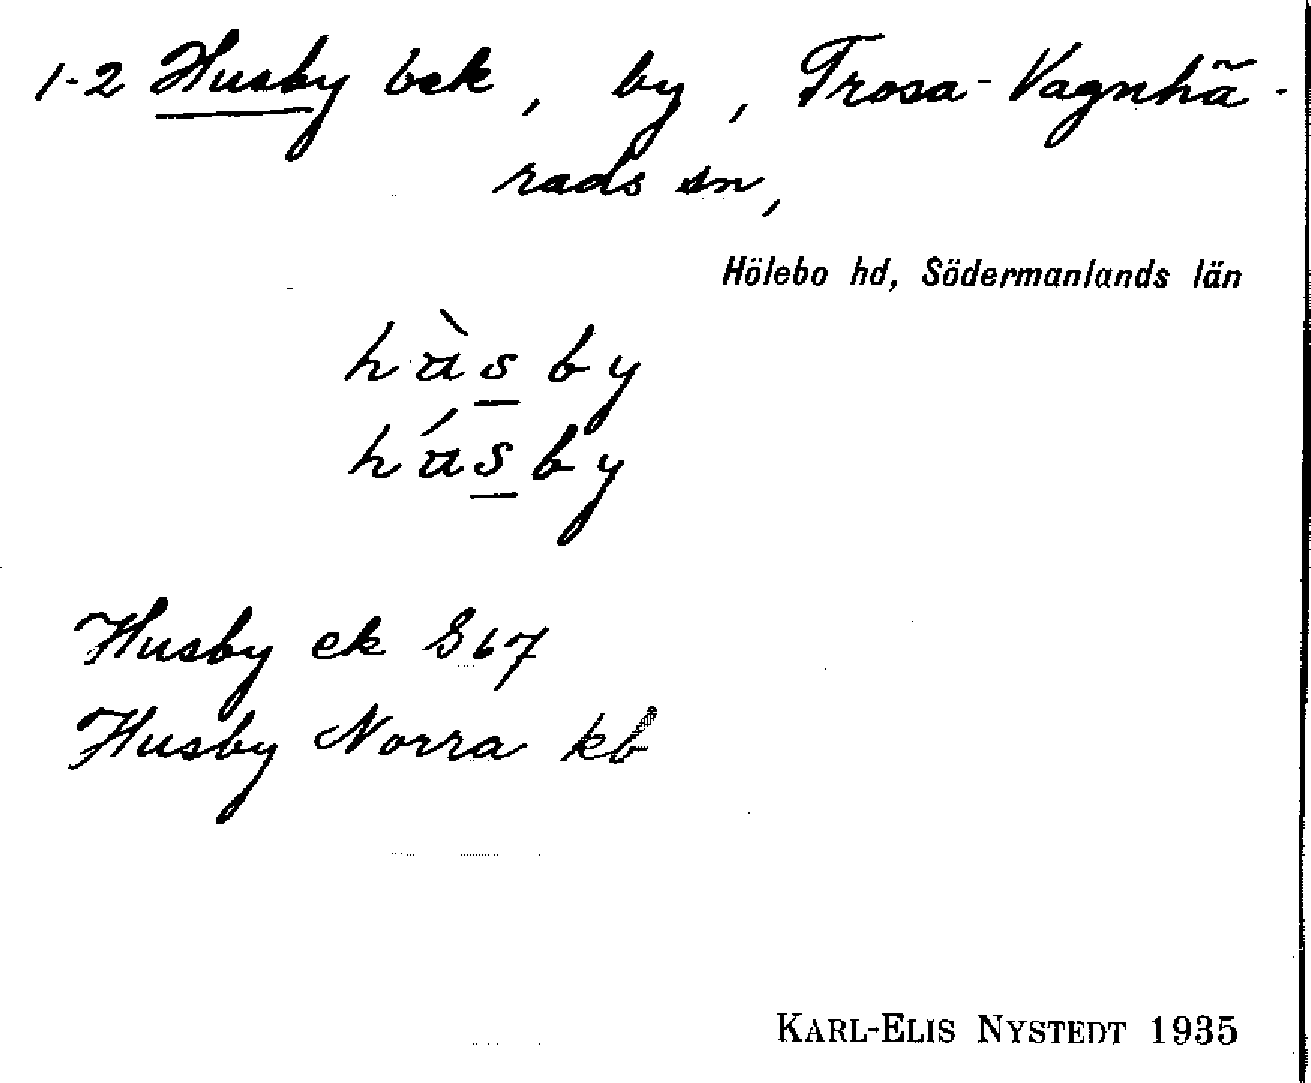 1-2 Husby bek, by, Trosa-Vagnhä-
rads sn,
Hölebo hd, Södermanlands län
hùsby
húsby
Husby ek S 67
Husby Norra kb
KARL-ELIS NYSTEDT 1935